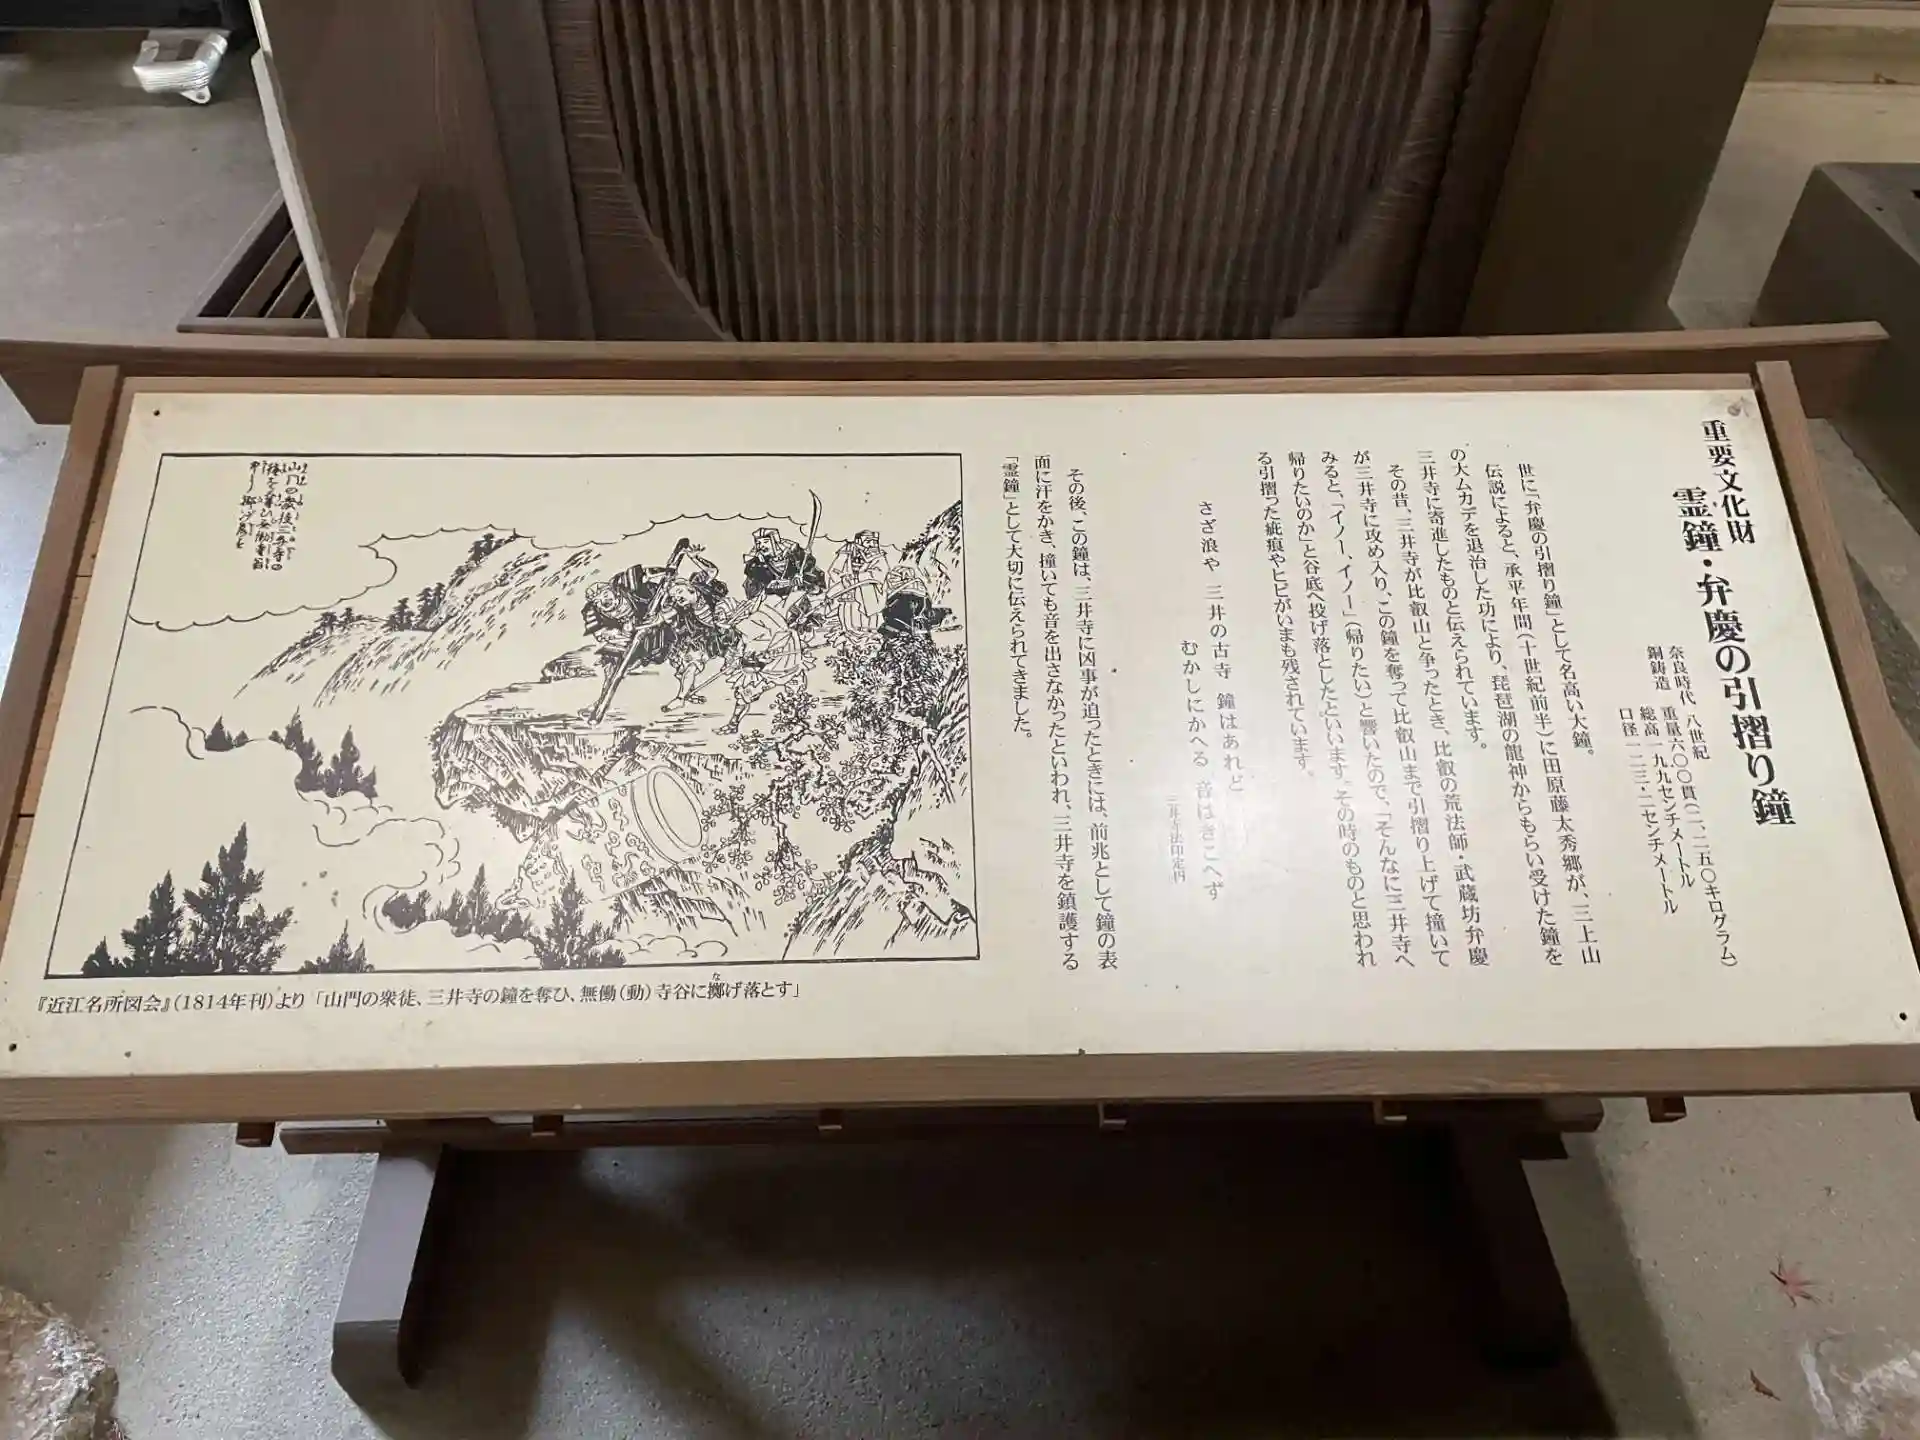 重要文化財
霊鐘・弁慶の引摺り鐘
奈良時代 八世紀
重量六〇〇貫(二、二五〇キログラム)
銅鋳造
総高一九九センチメートル
口径一二三・二センチメートル
世に「弁慶の引摺り鐘」として名高い大鐘。
伝説によると、承平年間(十世紀前半)に田原藤太秀郷が、三上山
の大ムカデを退治した功により、琵琶湖の龍神からもらい受けた鐘を
三井寺に寄進したものと伝えられています。
その昔、三井寺が比叡山と争ったとき、比叡の荒法師・武蔵坊弁慶
が三井寺に攻め入り、この鐘を奪って比叡山まで引摺り上げて撞いて
みると、「イノー、イノー」(帰りたい)と響いたので、「そんなに三井寺へ
帰りたいのか」と谷底へ投げ落としたといいます。その時のものと思われ
る引摺った疵痕やヒビがいまも残されています。
さざ浪や 三井の古寺 鐘はあれど
むかしにかへる 音はきこへず
三井寺法印定円
その後、この鐘は、三井寺に凶事が迫ったときには、前兆として鐘の表
面に汗をかき、撞いても音を出さなかったといわれ、三井寺を鎮護する
「霊鐘」として大切に伝えられてきました。
『近江名所図会』(1814年刊)より「山門の衆徒、三井寺の鐘を奪ひ、無働(動)寺谷に擲げ落とす」
な